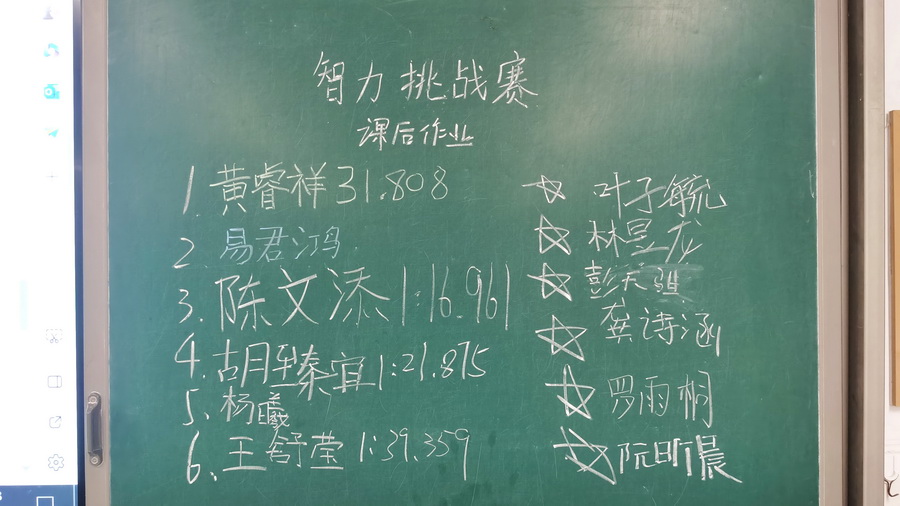 智力挑战赛
课后作业
1 黄睿祥 31.808
2 易君鸿
3. 陈文添 1:16.961
4. 胡臻宜 1:21.875
5. 杨曦
6. 王舒莹 1:39.359
☆ 叶子毓
☆ 林昱龙
☆ 彭天
☆ 龚诗涵
☆ 罗雨桐
☆ 阮昕晨